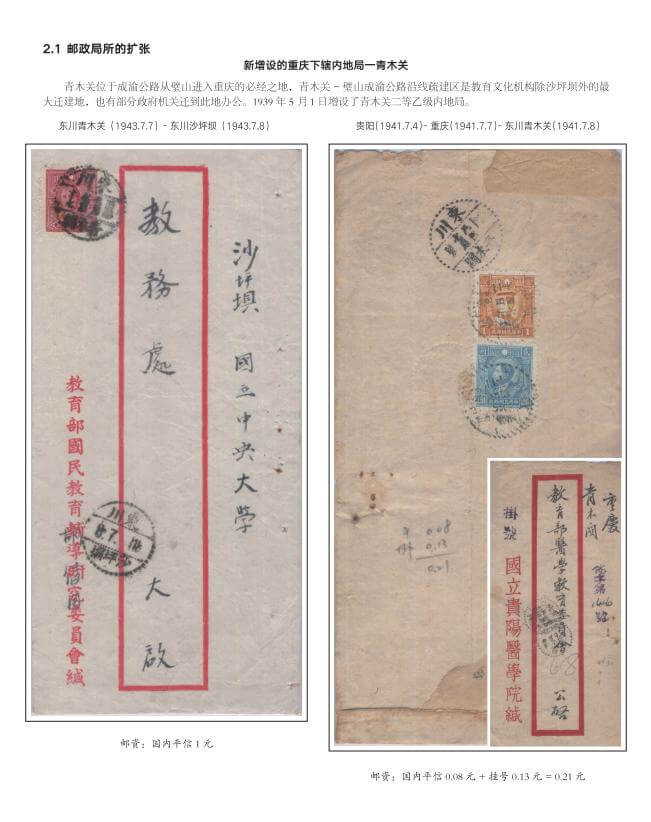 2.1 邮政局所的扩张
新增设的重庆下辖内地局—青木关
青木关位于成渝公路从璧山进入重庆的必经之地，青木关－璧山成渝公路沿线疏建区是教育文化机构除沙坪坝外的最
大迁建地，也有部分政府机关迁到此地办公。1939 年 5 月 1 日增设了青木关二等乙级内地局。
东川青木关（1943.7.7）- 东川沙坪坝（1943.7.8）
贵阳(1941.7.4)- 重庆(1941.7.7)- 东川青木关(1941.7.8)
沙坪坝 國立中央大學
教務處 大啟
教育部國民教育輔導研究委員會緘
東川
東川
平 0.08
掛 0.13
0.21
重慶
青木関
教育部醫學教育委員會 公啓
掛號
國立貴陽醫學院緘
68
邮资：国内平信 1 元
邮资：国内平信 0.08 元 + 挂号 0.13 元 = 0.21 元